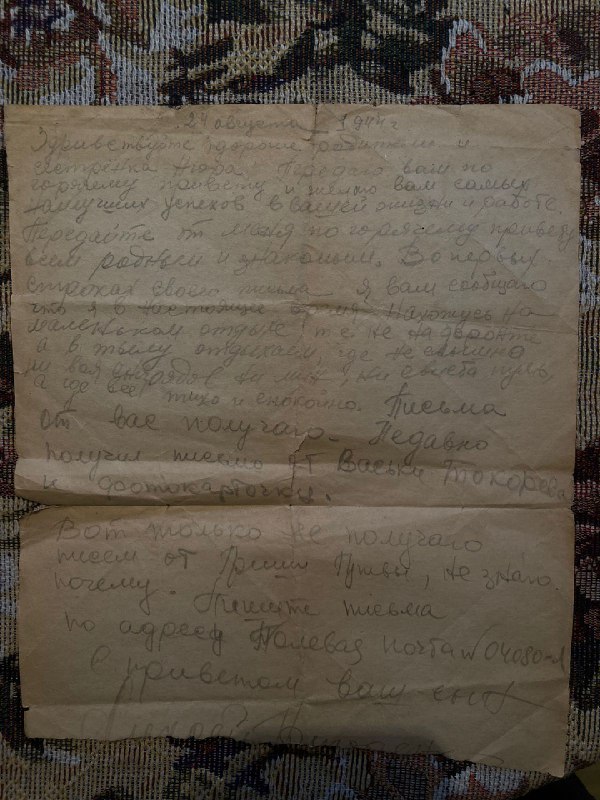 24 августа 1944 г
Здравствуйте дорогие родители и
сестрёнка Нюра! Передаю вам по
горячему привету и желаю вам самых
наилучших успехов в вашей жизни и работе.
Передайте от меня по горячему привету
всем родным и знакомым. Во первых
строках своего письма я вам сообщаю
что я в настоящее время нахожусь на
маленьком отдыхе, те не на фронте
а в тылу отдыхаем где не слышно
ни воя снарядов ни мин, ни свиста пуль,
а где всё тихо и спокойно. Письма
от вас получаю. Недавно
получил письмо от Васьки Токорева
и фотокарточку.
Вот только не получаю
писем от Гриши, не знаю
почему. Пишите письма
по адресу Полевая почта № 04080-Л
С приветом ваш сын
Алексей